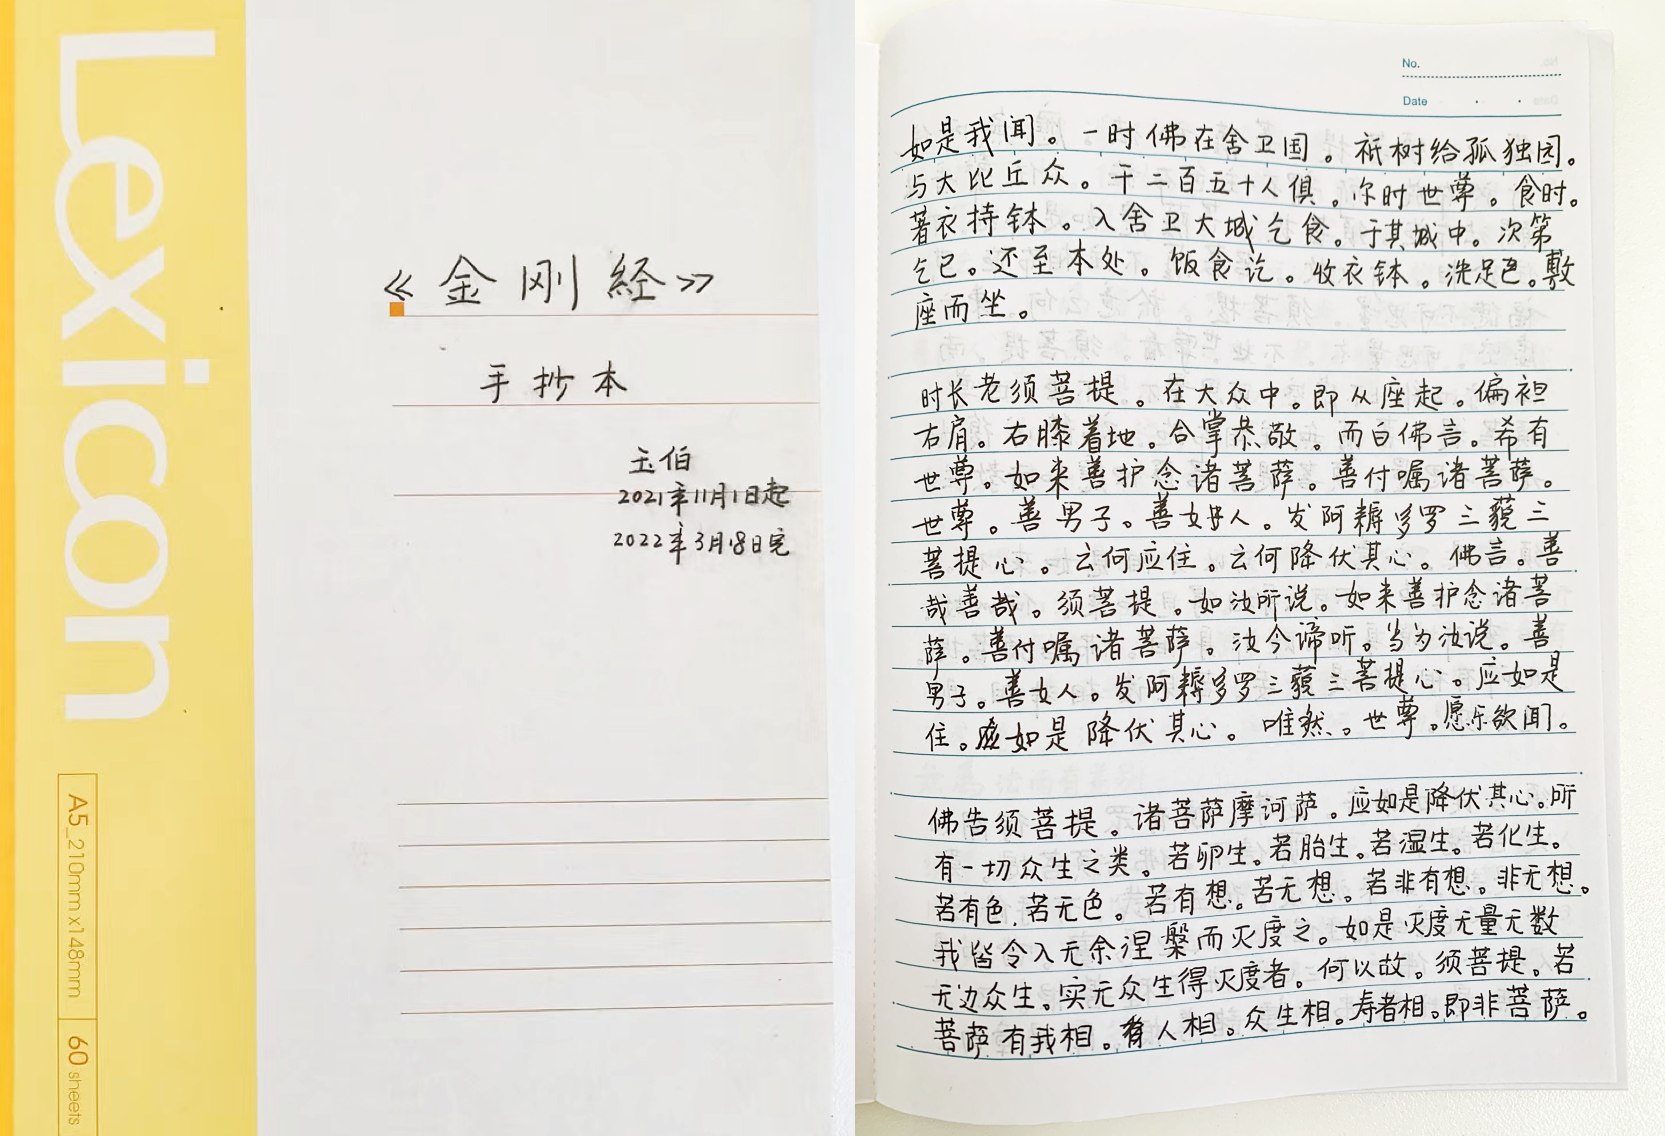 Lexicon
A5_210mm x148mm
60 sheets
《金刚經》
手抄本
玉伯
2021年11月1日起
2022年3月18日完
No.
Date
如是我闻。一时佛在舍卫国。祇树给孤独园。
与大比丘众。千二百五十人俱。尔时世尊。食时。
著衣持钵。入舍卫大城乞食。于其城中。次第
乞已。还至本处。饭食讫。收衣钵。洗足已。敷
座而坐。
时长老须菩提。在大众中。即从座起。偏袒
右肩。右膝着地。合掌恭敬。而白佛言。希有
世尊。如来善护念诸菩萨。善付嘱诸菩萨。
世尊。善男子。善女人。发阿耨多罗三藐三
菩提心。云何应住。云何降伏其心。佛言。善
哉善哉。须菩提。如汝所说。如来善护念诸菩
萨。善付嘱诸菩萨。汝今谛听。当为汝说。善
男子。善女人。发阿耨多罗三藐三菩提心。应如是
住。应如是降伏其心。唯然。世尊。愿乐欲闻。
佛告须菩提。诸菩萨摩诃萨。应如是降伏其心。所
有一切众生之类。若卵生。若胎生。若湿生。若化生。
若有色。若无色。若有想。若无想。若非有想。非无想。
我皆令入无余涅槃而灭度之。如是灭度无量无数
无边众生。实无众生得灭度者。何以故。须菩提。若
菩萨有我相。有人相。众生相。寿者相。即非菩萨。